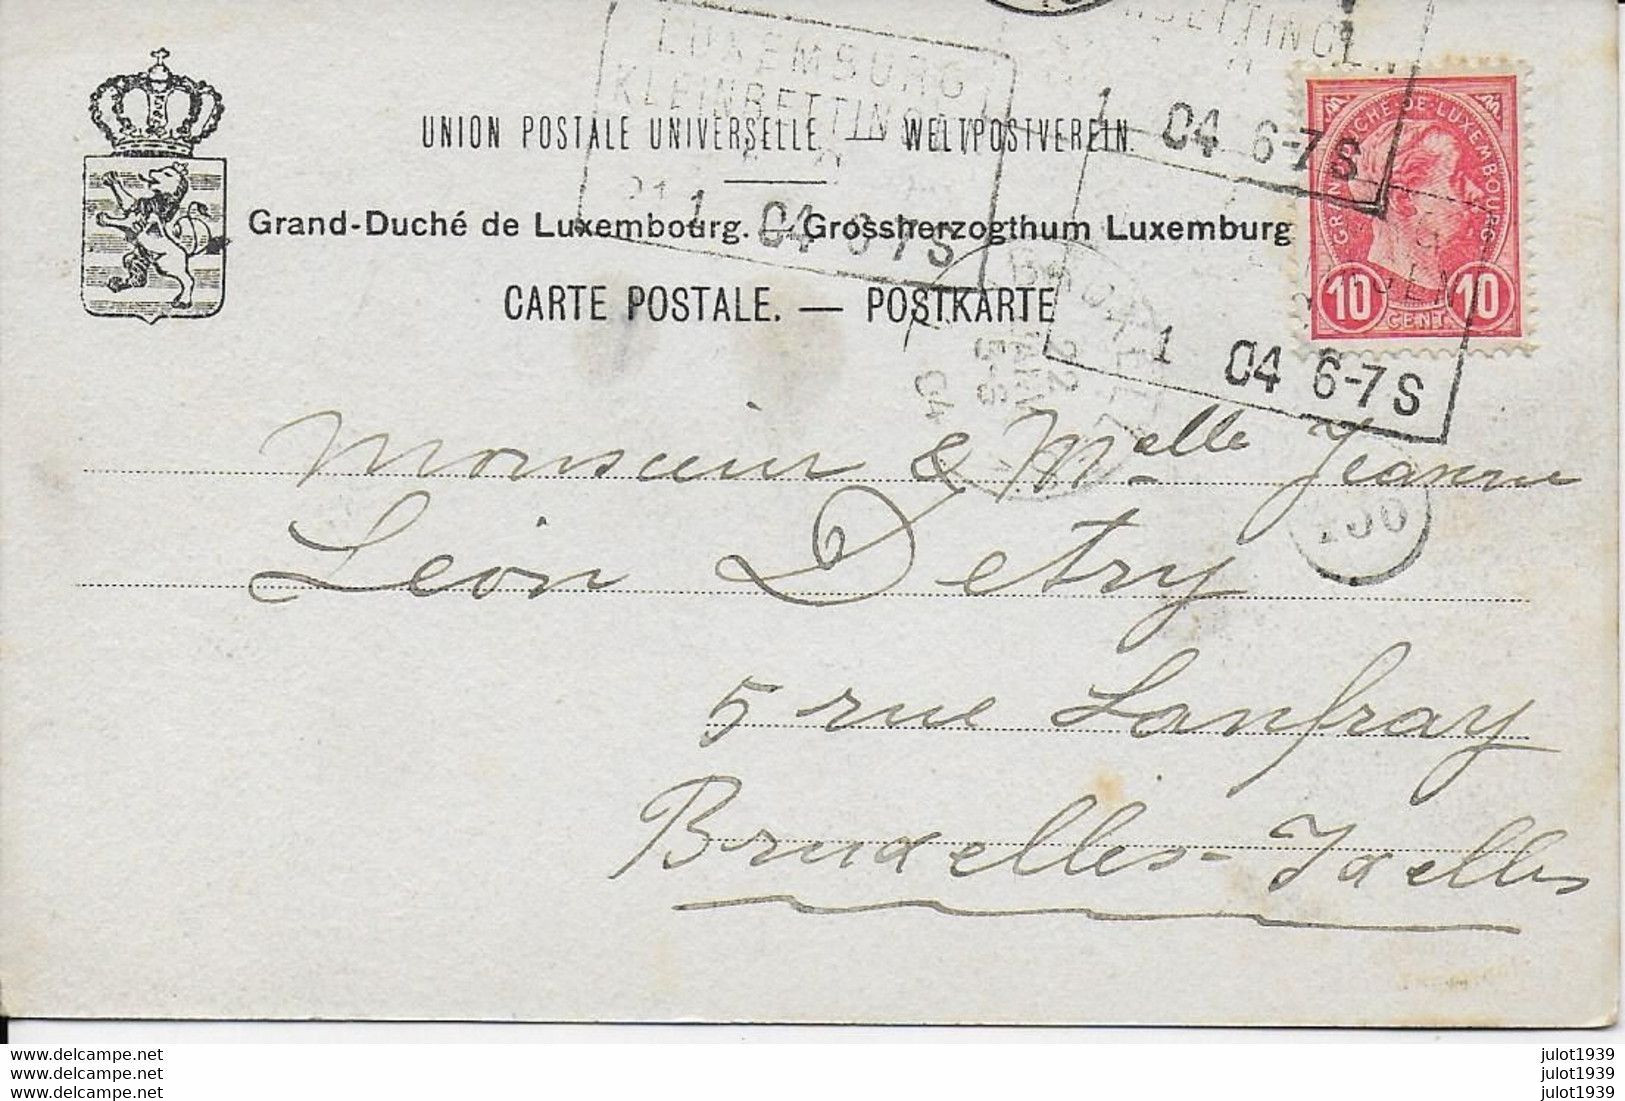 LUXEMBURG
KLEINBETTINGEN
21 1 04 6-7S
1 04 6-7S
UNION POSTALE UNIVERSELLE. — WELTPOSTVEREIN.
Grand-Duché de Luxembourg. — Grossherzogthum Luxemburg
CARTE POSTALE. — POSTKARTE
GRAND DUCHÉ-DE-LUXEMBOURG
10 CENT. 10
1 04 6-7S
22
04
Monsieur & Melle Jeanne
Léon Detry
5 rue Lanfray
Bruxelles-Ixelles
www.delcampe.net
www.delcampe.net
www.delcampe.net
julot1939
julot1939
julot1939